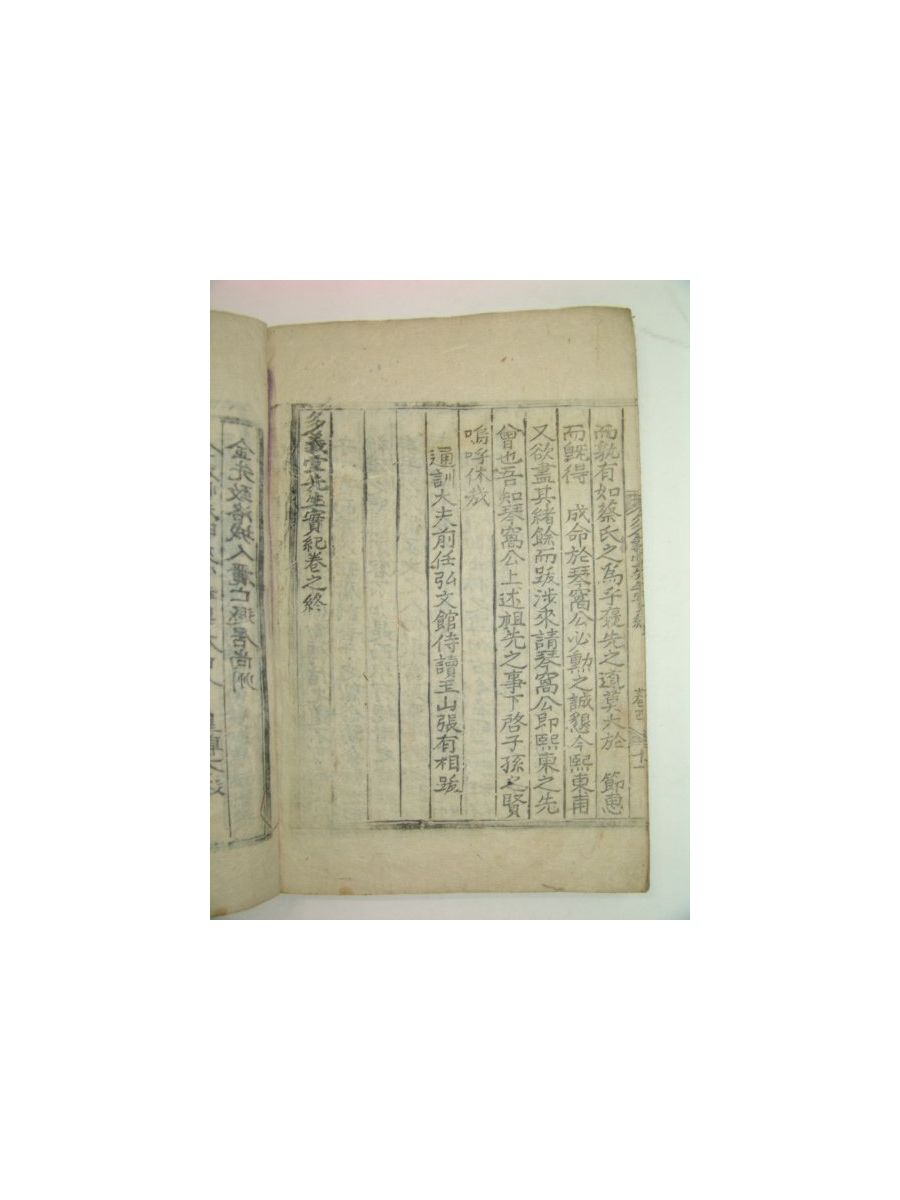 而孰有如蔡氏之爲乎襃先之道莫大於 節惠
而旣得 成命於琴窩公必勳之誠懇今熙東甫
又欲盡其緖餘而跋涉來請琴窩公即熙東之先
曾也吾知琴窩公上述祖先之事下啓子孫之賢
嗚呼休哉
通訓大夫前任弘文館侍讀玉山張有相跋
多義堂先生實紀卷之終